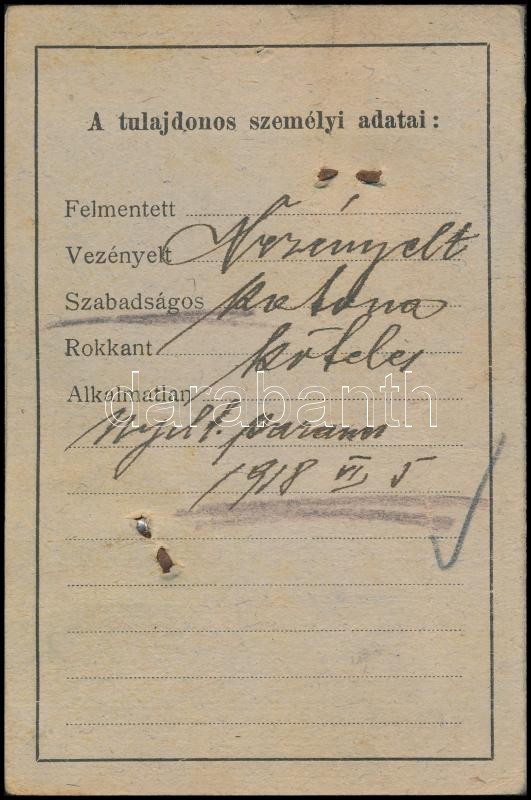 A tulajdonos személyi adatai:
Felmentett
Vezényelt Vezényelt
Szabadságos katona
Rokkant köteles
Alkalmatlan
darabanth
Nyilt. parancs
1918 VI 5